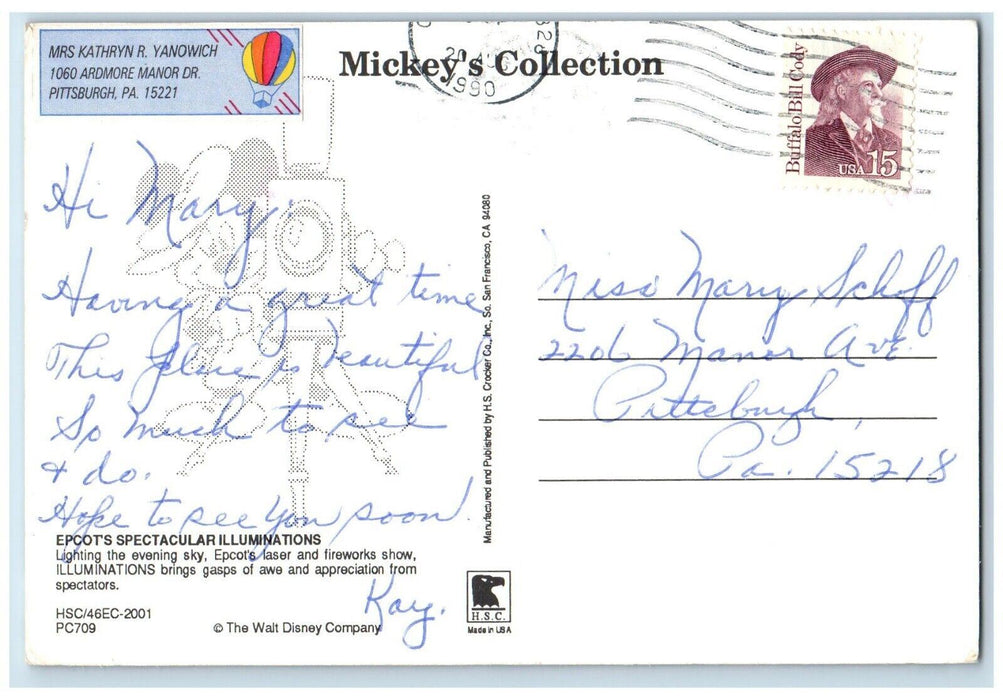 MRS KATHRYN R. YANOWICH
1060 ARDMORE MANOR DR.
PITTSBURGH, PA. 15221
Mickey's Collection
20
1990
328
Buffalo Bill Cody
USA 15
Hi Mary:
Having a great time
This place is beautiful
So much to see
& do.
Hope to see you soon.
Kay.
Miss Mary Schoff
2206 Manor Ave.
Pittsburgh,
Pa. 15218
Manufactured and Published by H.S. Crocker Co., Inc., So. San Francisco, CA 94080
EPCOT'S SPECTACULAR ILLUMINATIONS
Lighting the evening sky, Epcot's laser and fireworks show,
ILLUMINATIONS brings gasps of awe and appreciation from
spectators.
HSC/46EC-2001
PC709
© The Walt Disney Company
H.S.C.
Made in USA